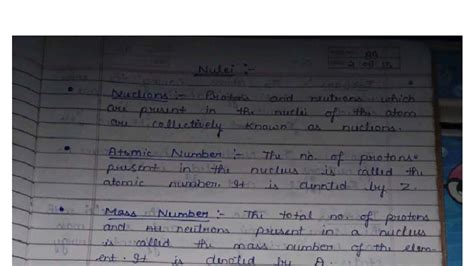 Nulei :-
Nuclions :- Protons and neutrons which
are present in the nuclei of the atom
are collectively known as nuclions.
Atomic Number :- The no. of protons
present in the nucleus is called the
atomic number. It is denoted by Z.
Mass Number :- The total no. of protons
and neutrons present in a nucleus
is called the mass number of the elem-
ent. It is denoted by A.